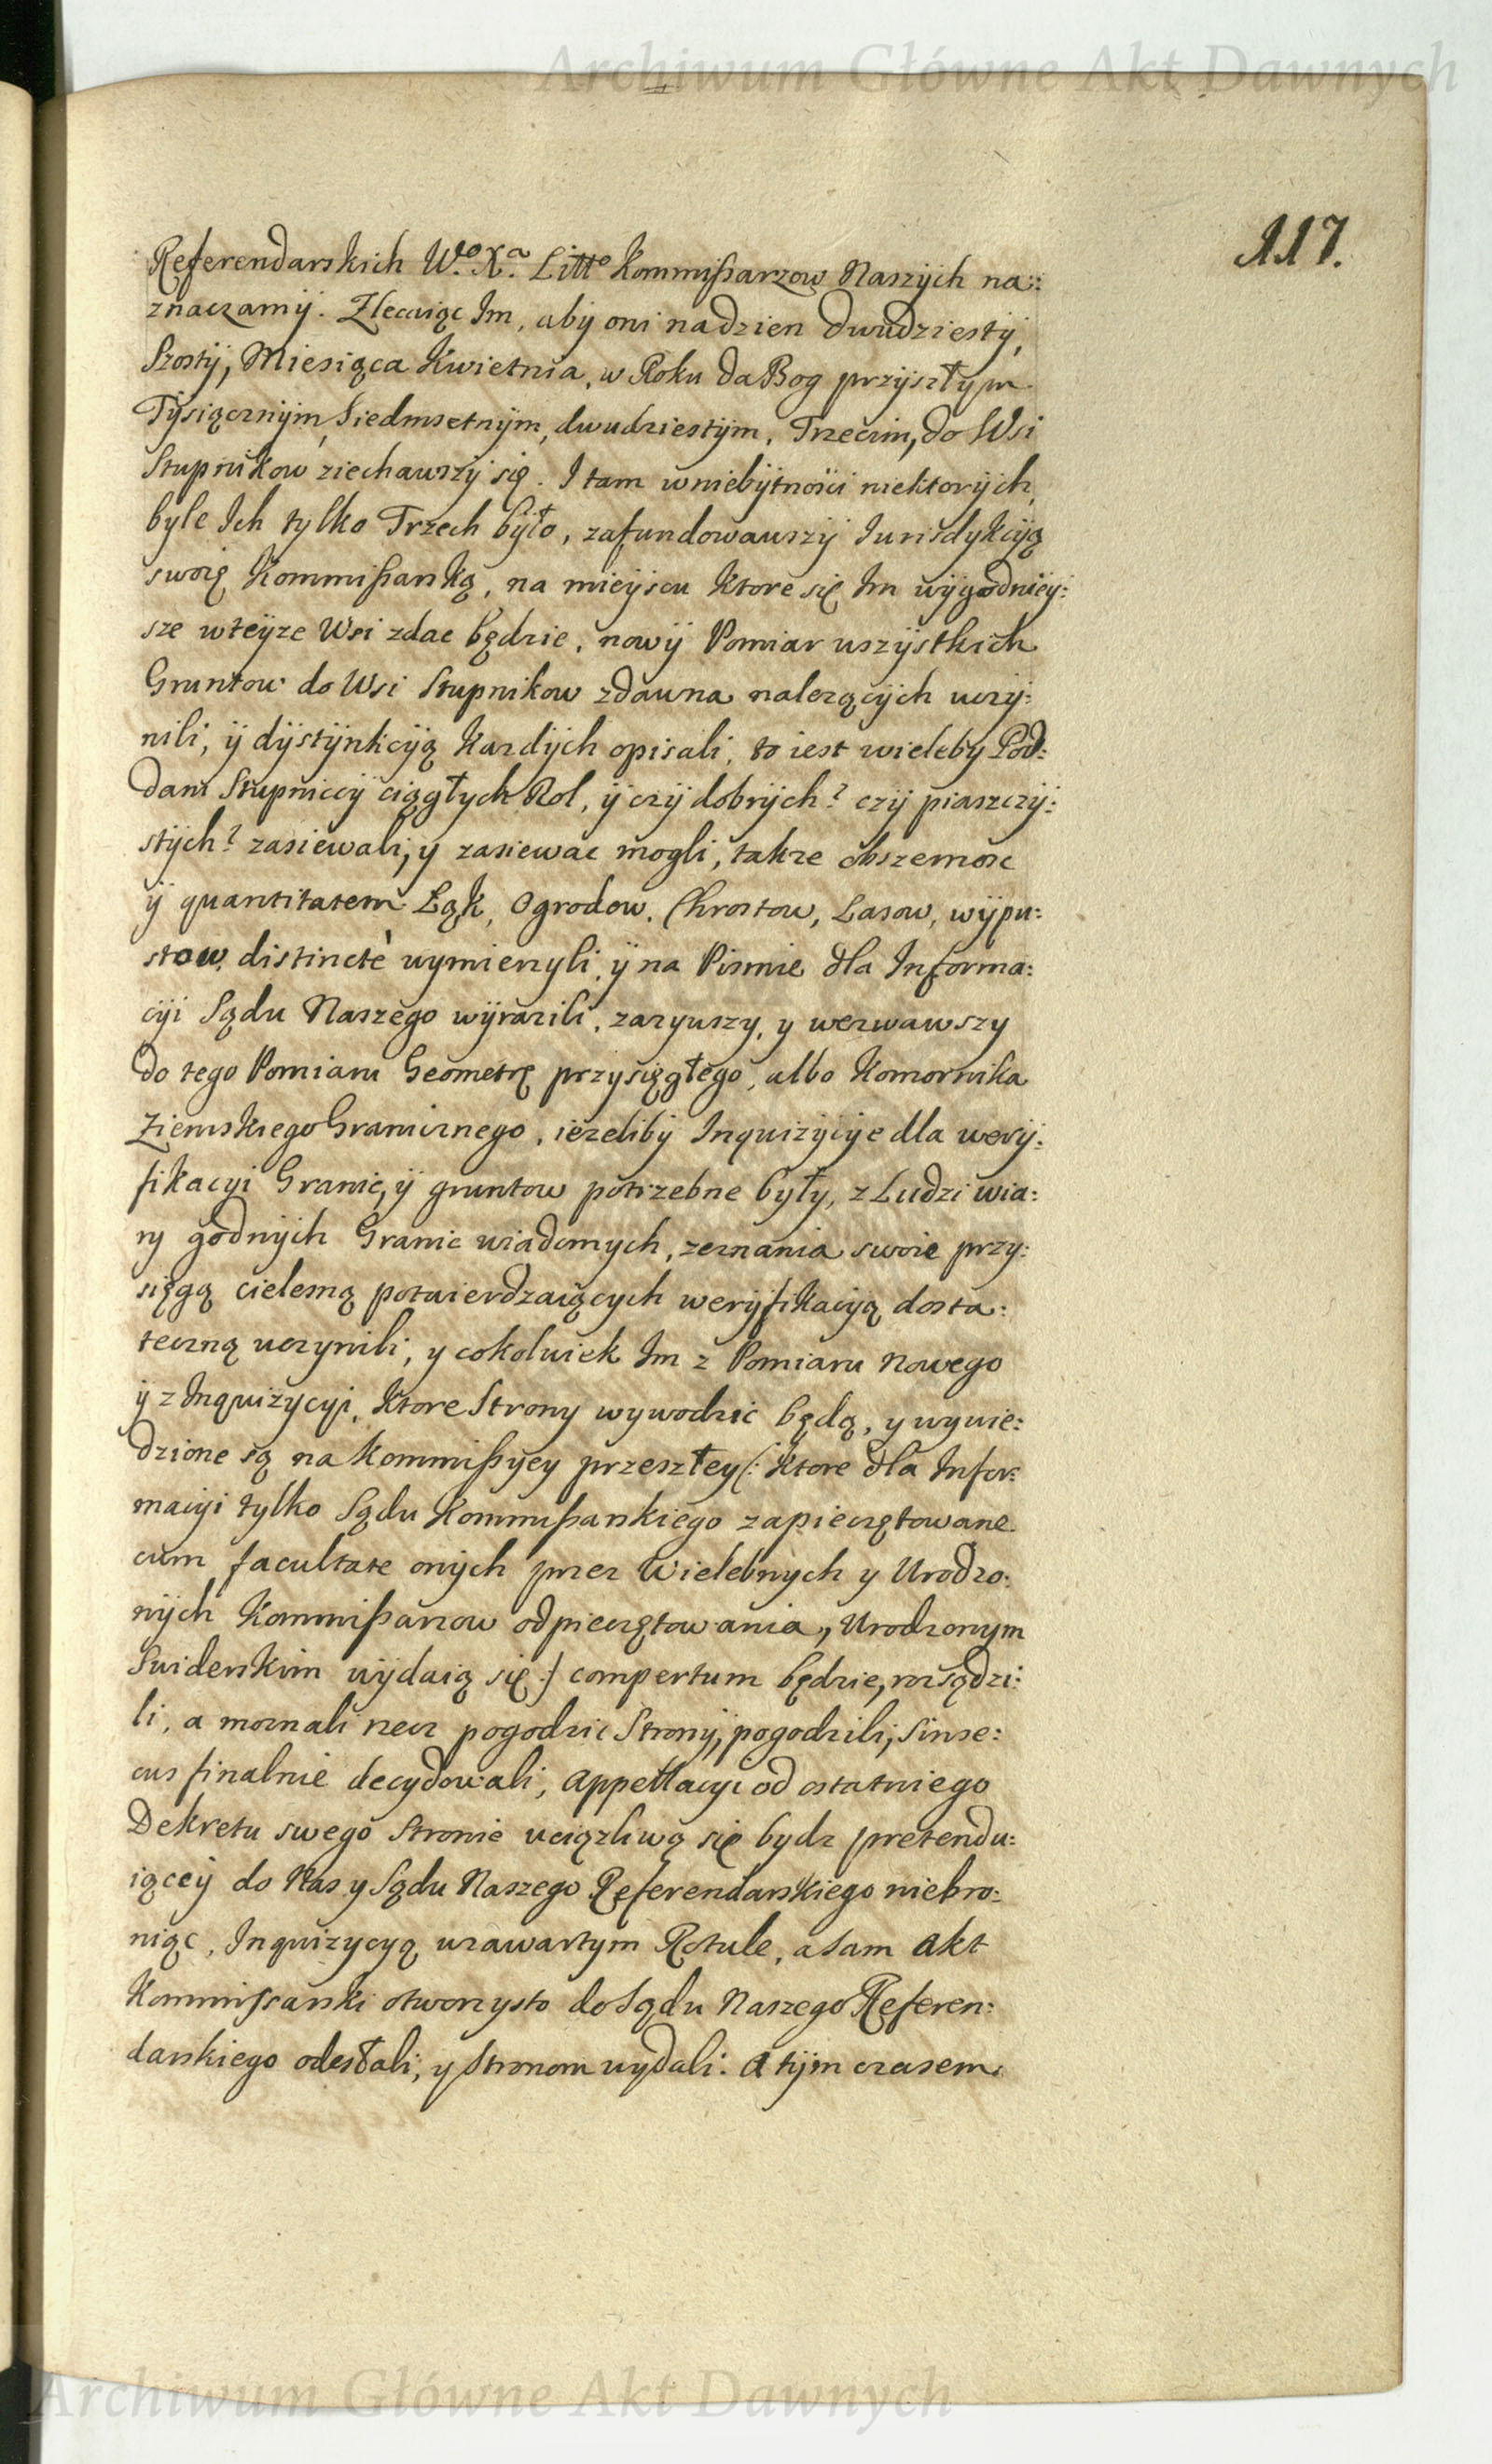 Archiwum Główne Akt Dawnych
117.
Referendarskich W.º X.ª Litt.º Kommißarzow Naszych na:
znaczamy. Zlecaiąc Im, aby oni na dzien Dwudziesty,
Szosty, Miesiąca Kwietnia, w Roku da Bog przyszłym
Tysiącznym, Siedmsetnym, dwudziestym, Trzecim, do Wsi
Stupnikow ziechawszy się. I tam w niebytnosci niektorych,
byle Ich tylko Trzech było, zafundowawszy Iurisdykcyą
swoię Kommißarską, na mieyscu ktore się Im wygodniey:
sze w teyze Wsi zdac będzie, nowy Pomiar wszystkich
Gruntow do Wsi Stupnikow zdawna nalezących uczy:
nili, y dystynkcyą kazdych opisali, to iest wieleby Pod:
dani Stupniccy ciągłych Rol, y czy dobrych? czy piaszczy:
stych? zasiewali, y zasiewac mogli, takze obszernosc
y quantitatem Łąk, Ogrodow, Chrostow, Lasow, wypu:
stow, distinctè wymienyli, y na Pismie dla Informa:
cyi Sądu Naszego wyrazili, zazywszy, y wezwawszy
do tego Pomiaru Geometrę przysięgłego, albo Komornika
Ziemskiego Granicznego, iezeliby Inquizycye dla wery:
fikacyi Granic, y gruntow potrzebne były, z Ludzi wia:
ry godnych Granic wiadomych, zeznania swoie przy:
sięgą cielesną potwierdzaiących weryfikacyą dosta:
teczną uczynili, y cokolwiek Im z Pomiaru Nowego
y z Inquizycyi, ktore Strony wywodzic będą, y wywie:
dzione są na Kommißyey przeszłey (: ktore dla Infor:
macyi tylko Sądu Kommißarskiego zapieczętowane
cum facultate onych przez Wielebnych y Urodzo:
nych Kommißarzow odpieczętowania, Urodzonym
Swiderskim wydaią się :) compertum będzie, rozsądzi:
li, a moznali rzecz pogodzic Strony, pogodzili, sin se:
cus finalnie decydowali, Appellacyi od ostatniego
Dekretu swego Stronie uciązliwą się bydz pretendu:
iącey do Nas y Sądu Naszego Referendarskiego niebro:
niąc, Inquizycyą w zawartym Rotule, a sam Akt
Kommissarski otworzysto do Sądu Naszego Referen:
darskiego odesłali, y Stronom wydali. A tym czasem
Archiwum Główne Akt Dawnych